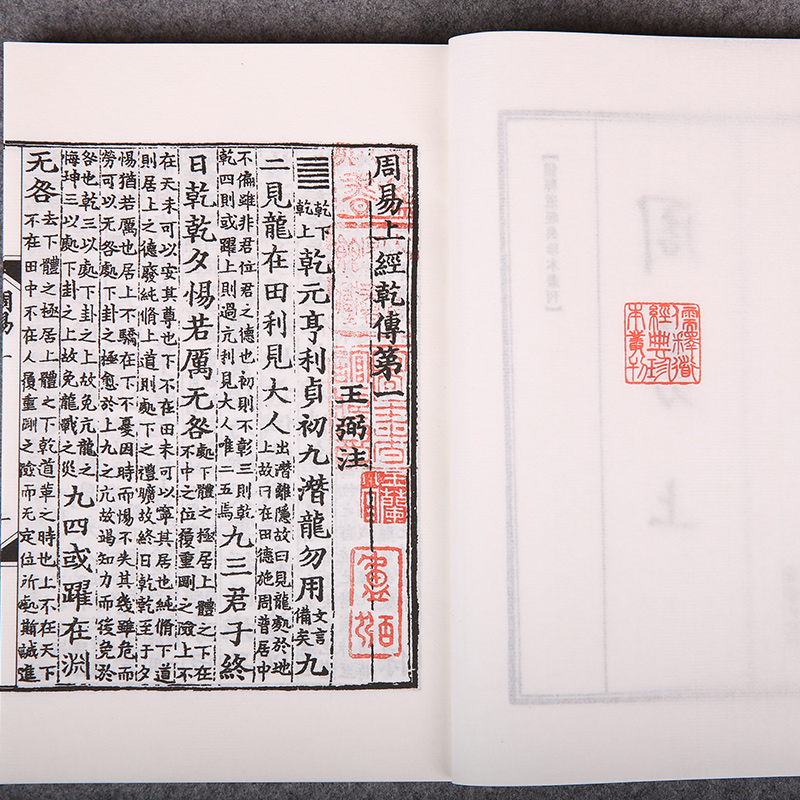 儒釋道
經典珍
本叢刊
周易上經乾傳苐一
王弼注
䷀乾下乾上乾元亨利貞初九潛龍勿用文言備矣九
二見龍在田利見大人出潛離隱故曰見龍處於地上故曰在田德施周普居中
不偏雖非君位君之德也初則不彰三則乾乾四則或躍上則過亢利見大人唯二五焉九三君子終
日乾乾夕惕若厲无咎處下體之極居上體之下在不中之位履重剛之險上不
在天未可以安其尊也下不在田未可以寧其居也純脩下道則居上之德廢純脩上道則處下之禮曠故終日乾乾至于夕
惕猶若厲也居上不驕在下不憂因時而惕不失其幾雖危而勞可以无咎處下卦之極愈於上九之亢故竭知力而後免於
咎也乾三以處下卦之上故免亢龍之悔坤三以處下卦之上故免龍戰之災九四或躍在淵
无咎去下體之極居上體之下乾道革之時也上不在天下不在田中不在人履重剛之險而无定位所處斯誠進
周易 一